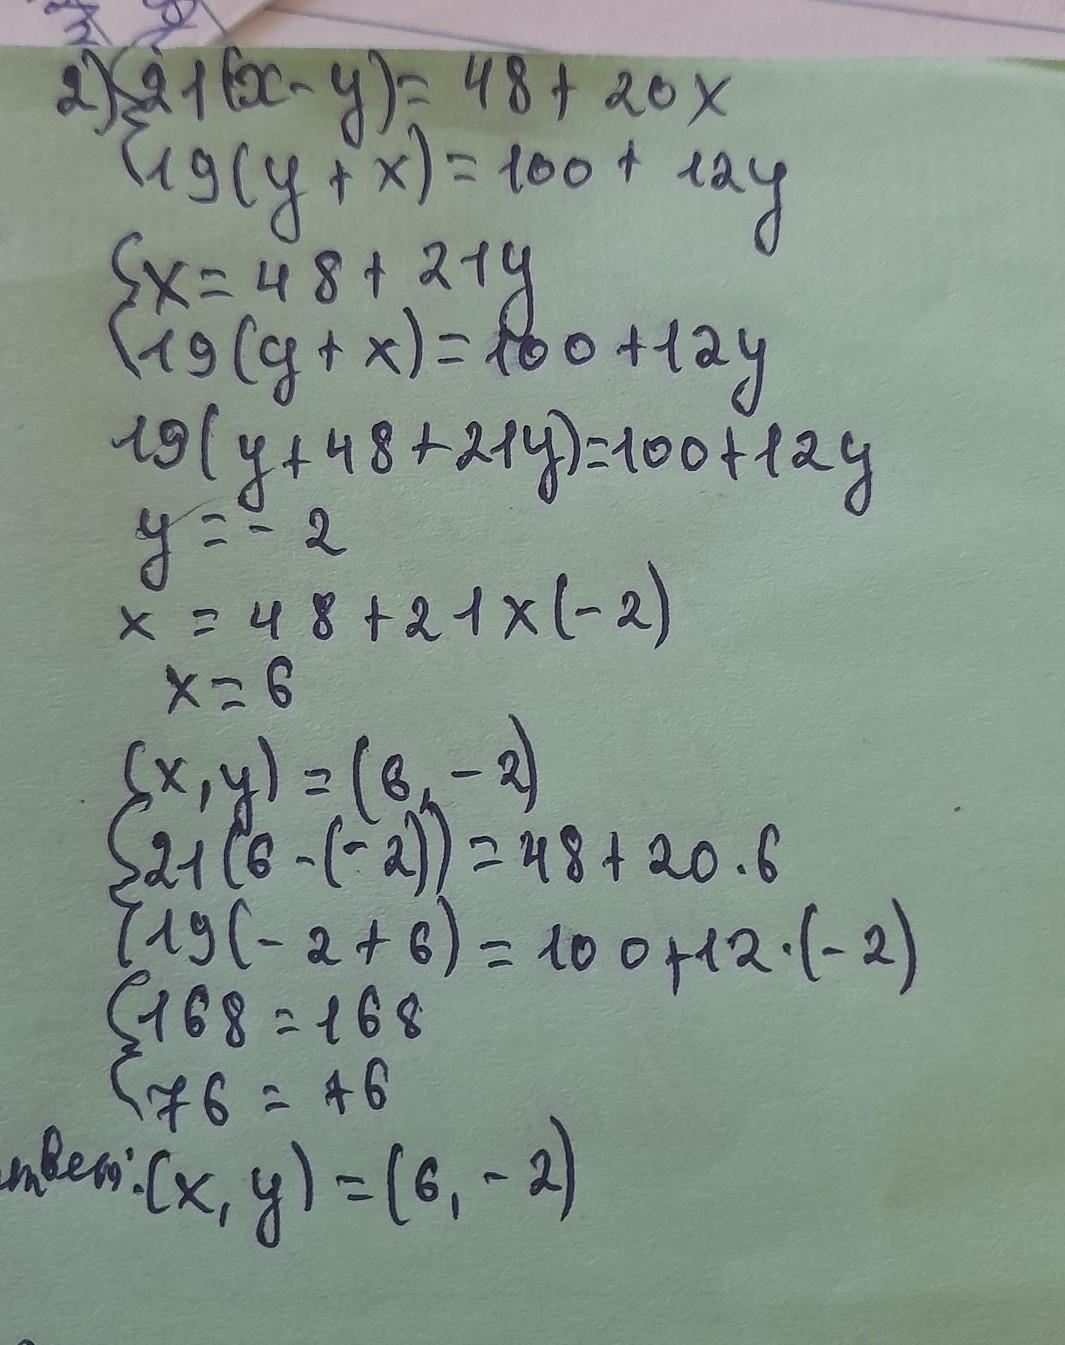 2) { 21(x-y)= 48+ 20x
{ 19(y+x)=100+ 12y
{ x= 48+ 21y
{ 19(y+x)=100+12y
19(y+48+21y)=100+12y
y=-2
x = 48+21x(-2)
x=6
(x,y)=(6,-2)
{ 21(6-(-2))=48+20·6
{ 19(-2+6)=100+12·(-2)
{ 168=168
{ 76=76
ответ: (x,y)=(6,-2)